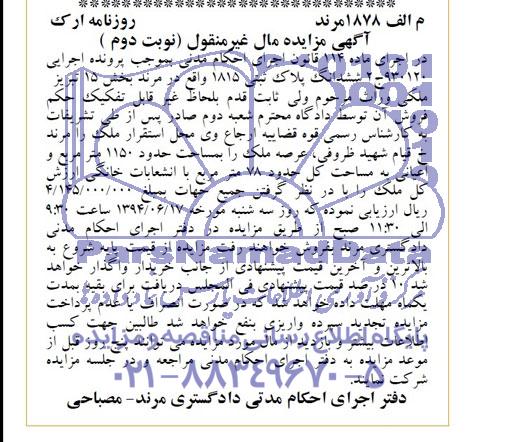 م الف ۱۸۷۸مرند روزنامه ارک
آگهی مزایده مال غیرمنقول (نوبت دوم )
در اجرای ماده ۱۱۴ قانون اجرای احکام مدنی بموجب پرونده اجرایی
ششدانگ پلاک ثبتی ۱۸۱۵ واقع در مرند بخش ۱۵ تبریز
ملکی وراث مرحوم ولی ثابت قدم بلحاظ غیر قابل تفکیک حکم
فروش آن توسط دادگاه محترم شعبه دوم صادر پس از طی تشریفات
به کارشناس رسمی قوه قضاییه ارجاع وی محل استقرار ملک را مرند
خ قیام شهید ظروفی، عرصه ملک را بمساحت حدود ۱۱۵۰ متر مربع و
اعیانی به مساحت کل حدود ۷۸ متر مربع با انشعابات خانگی ارزش
کل ملک را با در نظر گرفتن جمیع جهات بمبلغ ۴/۱۴۵/۰۰۰/۰۰۰
ریال ارزیابی نموده که روز سه شنبه مورخه ۱۳۹۴/۰۶/۱۷ ساعت ۹:۳۰
الی ۱۱:۳۰ صبح از طریق مزایده در دفتر اجرای احکام مدنی
دادگستری مرند بفروش خواهند رفت مزایده از قیمت پایه شروع به
بالاترین و آخرین قیمت پیشنهادی از جانب خریدار واگذار خواهد
شد ۱۰ درصد قیمت پیشنهادی فی المجلس دریافت برای بقیه بمدت
یکماه مهلت داده خواهد شد که در صورت انصراف یا عدم پرداخت
مزایده تجدید سپرده واریزی بنفع خواهد شد طالبین جهت کسب
اطلاعات بیشتر و بازدید از مال مورد مزایده می توانند پنج روز قبل از
موعد مزایده به دفتر اجرای احکام مدنی مراجعه و در جلسه مزایده
شرکت نمایند.
دفتر اجرای احکام مدنی دادگستری مرند- مصباحی
ParsNamadData
۰۲۱-۸۸۳۴۹۶۷۰-۵